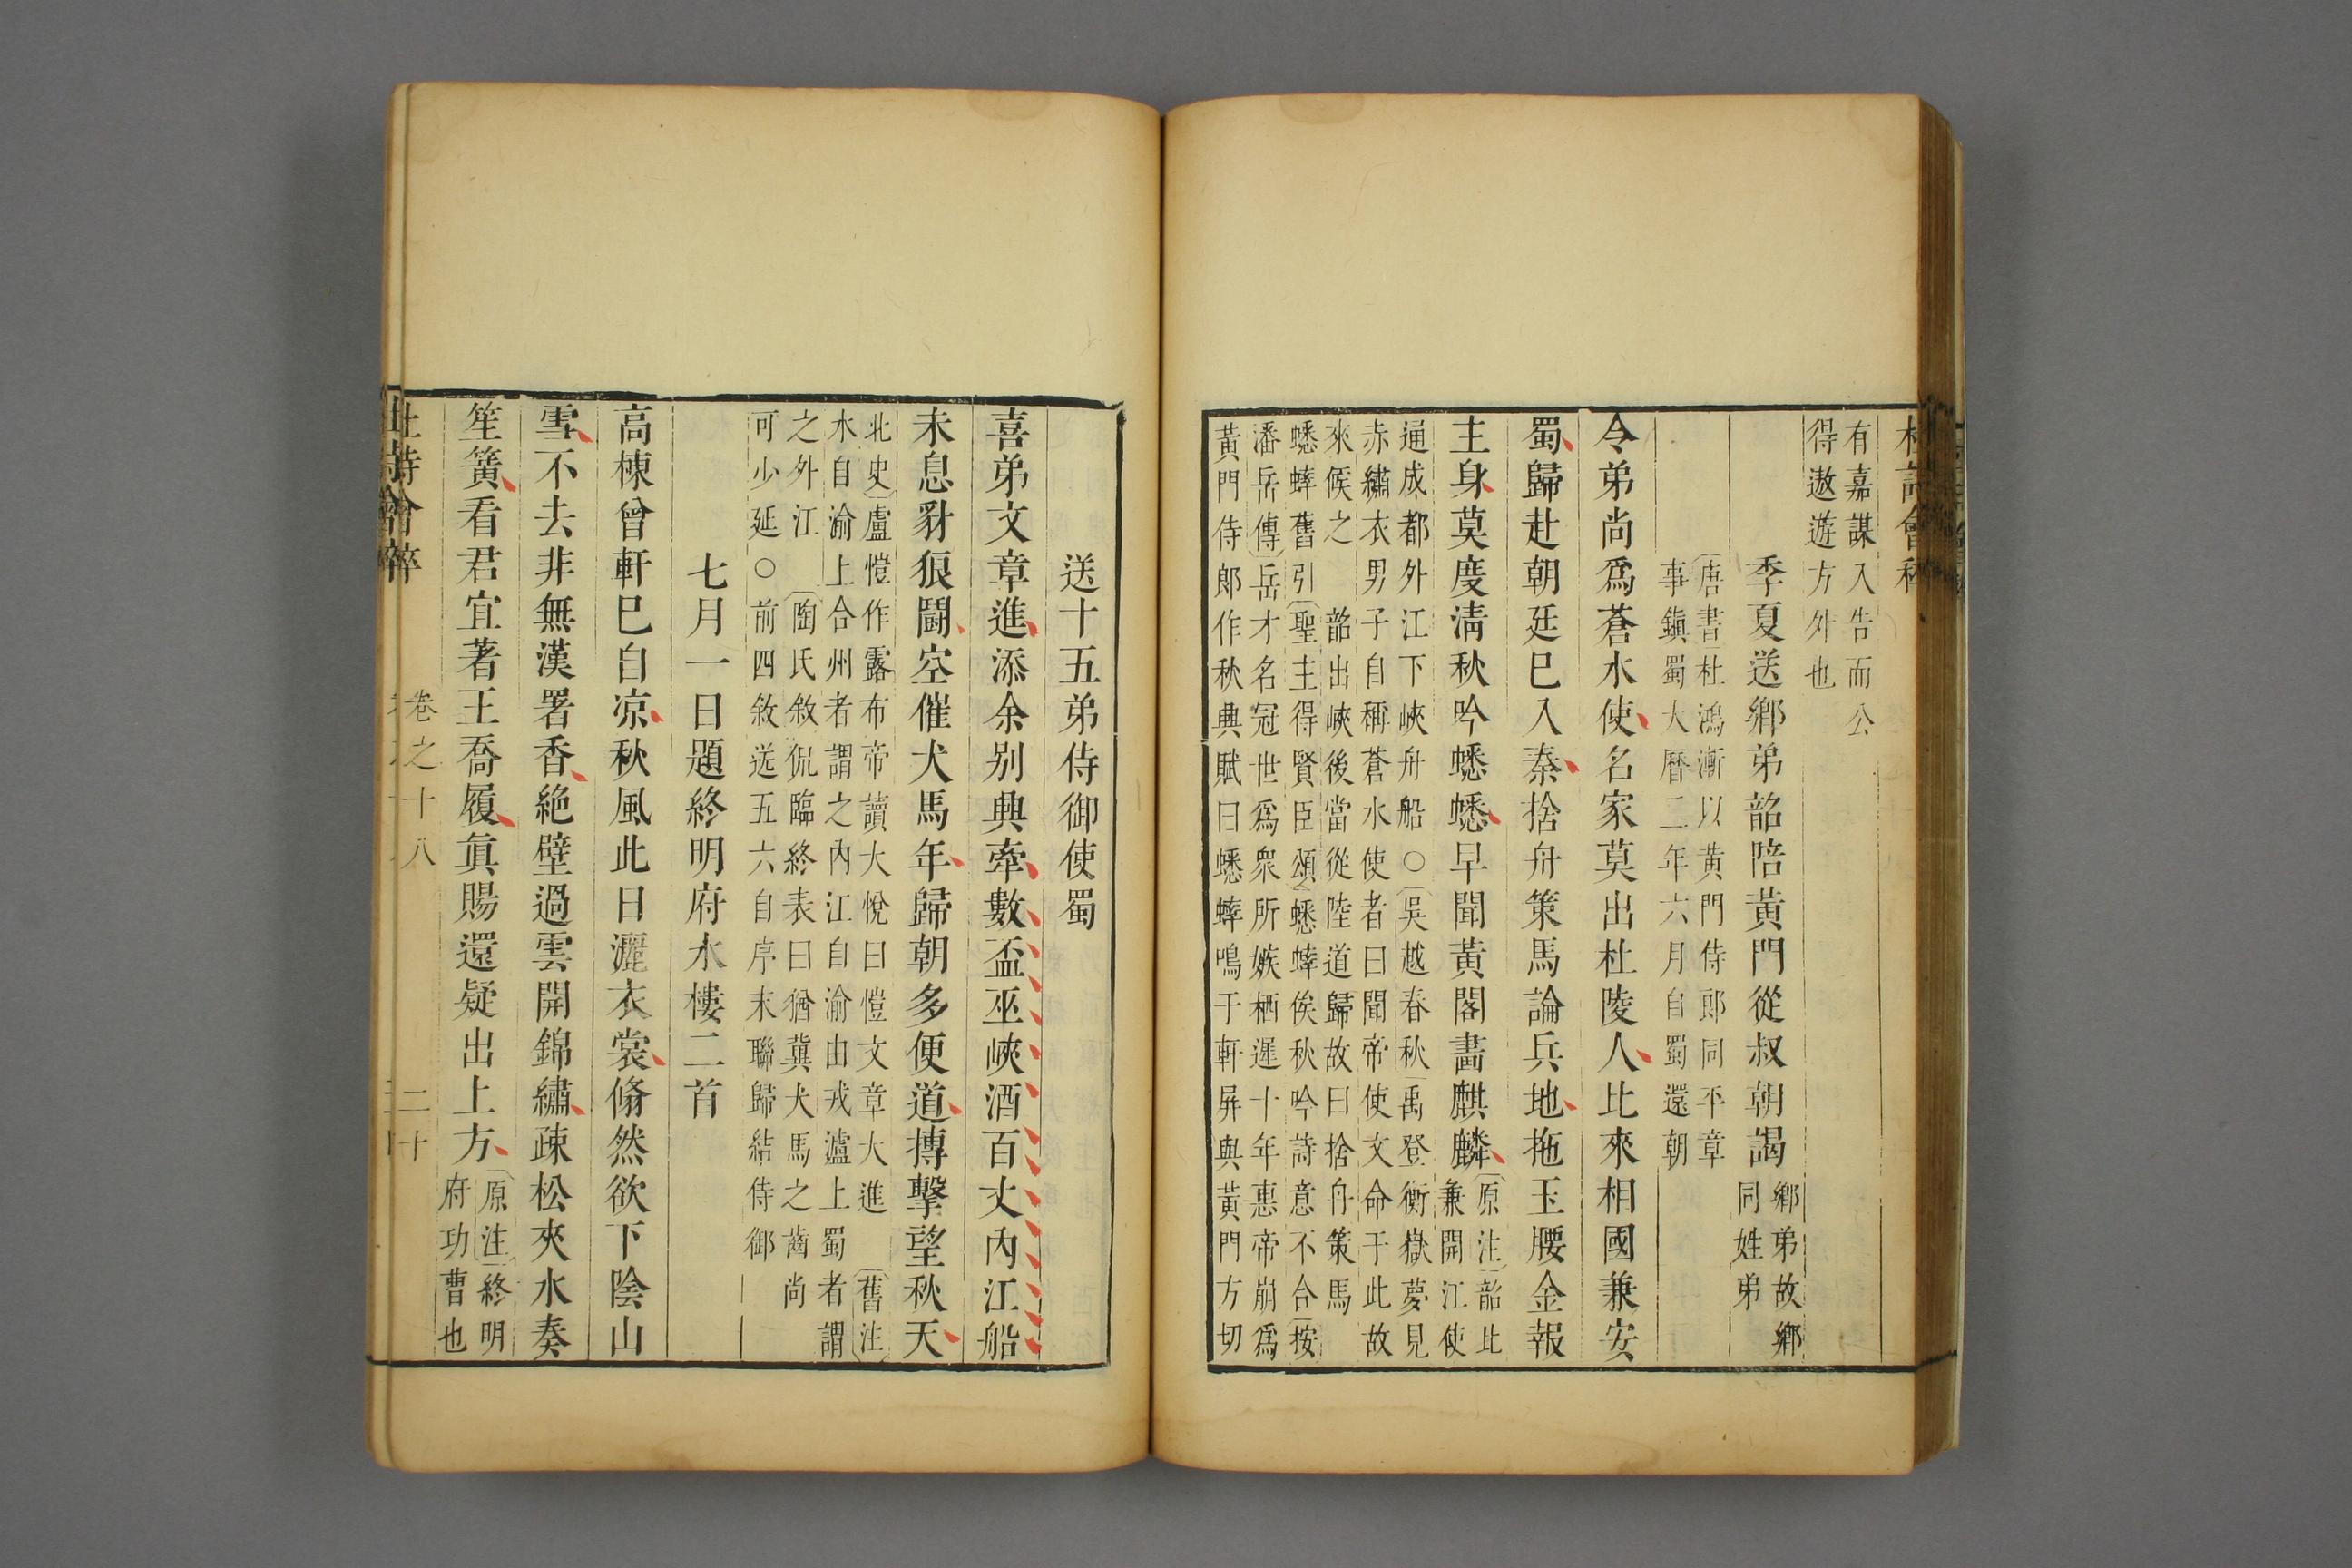 有嘉謀入告而公
得遨遊方外也
季夏送鄉弟韶陪黃門從叔朝謁
鄉弟故鄉
同姓弟
唐書杜鴻漸以黃門侍郎同平章
事鎭蜀大曆二年六月自蜀還朝
令弟尚爲蒼水使名家莫出杜陵人比來相國兼安
蜀歸赴朝廷巳入秦捨舟策馬論兵地拖玉腰金報
主身莫度淸秋吟蟋蟋早聞黃閣畵麒麟
原注韶此
兼開江使
通成都外江下峽舟船○吳越春秋禹登衡嶽夢見
赤繡衣男子自稱蒼水使者曰聞帝使文命于此故
來候之　韶出峽後當從陸道歸故曰捨舟策馬
蟋蟀舊引聖主得賢臣頌蟋蟀俟秋吟詩意不合按
潘岳傳岳才名冠世爲衆所嫉栖遲十年惠帝崩爲
黃門侍郎作秋興賦曰蟋蟀鳴于軒屏與黃門方切
送十五弟侍御使蜀
喜弟文章進添余別興牽數盃巫峽酒百丈內江船
未息豺狼鬪空催犬馬年歸朝多便道搏擊望秋天
北史盧愷作露布帝讀大悅曰愷文章大進　舊注
水自渝上合州者謂之內江自渝由戎瀘上蜀者謂
之外江　陶氏敘侃臨終表曰猶冀犬馬之齒尚
可少延○前四敘送五六自序末聯歸結侍御
七月一日題終明府水樓二首
高棟曾軒巳自凉秋風此日灑衣裳翛然欲下陰山
雪不去非無漢署香絶壁過雲開錦繡疎松夾水奏
笙簧看君宜著王喬履眞賜還疑出上方
原注終明
府功曹也
杜詩會稡
卷之十八
二十